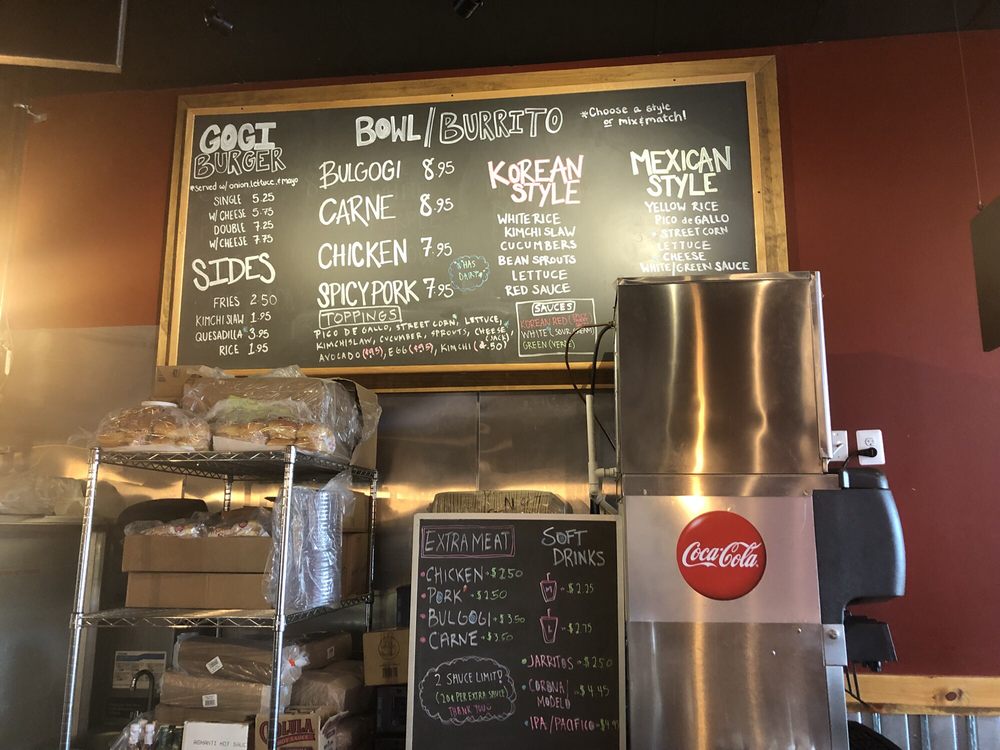 GOGI
BURGER
*served w/ onion, lettuce, & mayo
SINGLE 5.25
W/ CHEESE 5.75
DOUBLE 7.25
W/ CHEESE 7.75
SIDES
FRIES 2.50
KIMCHI SLAW 1.95
QUESADILLA 3.95
RICE 1.95
BOWL/BURRITO
*Choose a style
or mix & match!
BULGOGI 8.95
CARNE 8.95
CHICKEN 7.95
SPICY PORK 7.95
*HAS
DAIRY
KOREAN
STYLE
WHITE RICE
KIMCHI SLAW
CUCUMBERS
BEAN SPROUTS
LETTUCE
RED SAUCE
MEXICAN
STYLE
YELLOW RICE
PICO de GALLO
STREET CORN
LETTUCE
CHEESE
WHITE/GREEN SAUCE
TOPPINGS
PICO DE GALLO, STREET CORN, LETTUCE,
KIMCHI SLAW, CUCUMBER, SPROUTS, CHEESE
(JACK)
AVOCADO (.95), EGG (.95), KIMCHI (.50)
SAUCES
KOREAN RED
WHITE (SOUR CREAM)
GREEN (VERDE)
EXTRA MEAT
CHICKEN - $2.50
PORK - $2.50
BULGOGI - $3.50
CARNE - $3.50
2 SAUCE LIMIT!
(20¢ PER EXTRA SAUCE)
THANK YOU
SOFT
DRINKS
M - $2.25
L - $2.75
JARRITOS - $2.50
CORONA/ - $4.45
MODELO
IPA/PACIFICO
Coca-Cola
CHOLULA